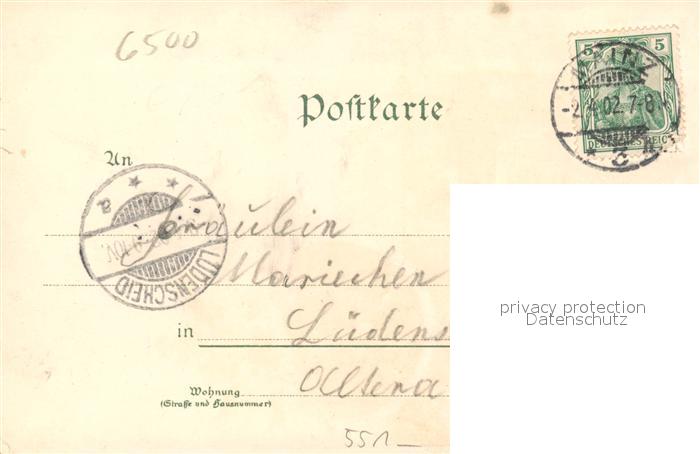 6500
5 5
MAINZ
-2.4.02.7-8
DEUTSCHES REICH
Postkarte
An
a
LÜDENSCHEID
Fräulein
Mariechen
in Lüdens
Altena
Wohnung
(Straße und Hausnummer)
551
privacy protection
Datenschutz